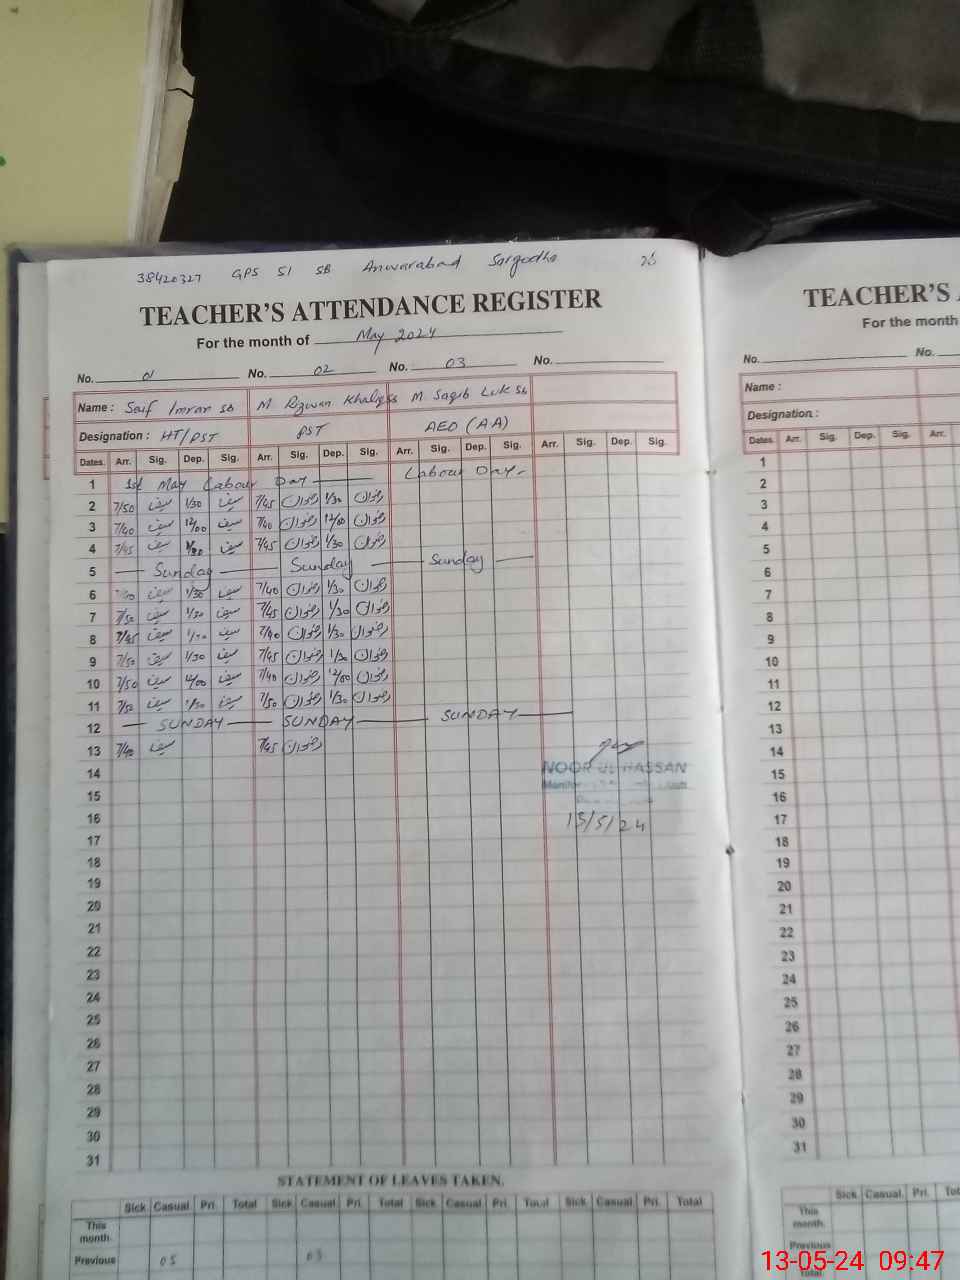 38420327 GPS 51 SB Anwarabad Sargodha 26
TEACHER'S ATTENDANCE REGISTER
For the month of May 2024
No. 01 No. 02 No. 03 No.
Name : Saif Imran sb M Rizwan Khaliq sb M Saqib Luk sb
Designation : HT/PST PST AEO (AA)
Dates. Arr. Sig. Dep. Sig. Arr. Sig. Dep. Sig. Arr. Sig. Dep. Sig. Arr. Sig. Dep. Sig.
1 1st May Labour Day Labour Day
2 7/50 سیف 1/30 سیف 7/45 رضوان 1/30 رضوان
3 7/40 سیف 12/00 سیف 7/40 رضوان 12/00 رضوان
4 7/45 سیف 1/30 سیف 7/45 رضوان 1/30 رضوان
5 Sunday Sunday Sunday
6 سیف 1/30 سیف 7/40 رضوان 1/30 رضوان
7 7/50 سیف 1/30 سیف 7/45 رضوان 1/30 رضوان
8 7/45 سیف 1/30 سیف 7/40 رضوان 1/30 رضوان
9 7/50 سیف 1/30 سیف 7/45 رضوان 1/30 رضوان
10 7/50 سیف 12/00 سیف 7/40 رضوان 12/00 رضوان
11 7/50 سیف 1/30 سیف 7/50 رضوان 1/30 رضوان
12 SUNDAY SUNDAY SUNDAY
13 7/40 سیف 7/45 رضوان
14 NOOR UL HASSAN
15 Monitor
16 13/5/24
17
18
19
20
21
22
23
24
25
26
27
28
29
30
31
STATEMENT OF LEAVES TAKEN.
Sick Casual Pri. Total Sick Casual Pri. Total Sick Casual Pri. Total Sick Casual Pri. Total
This month.
Previous 05 03
TEACHER'S
For the month
No. No.
Name :
Designation :
Dates. Arr. Sig. Dep. Sig. Arr.
1
2
3
4
5
6
7
8
9
10
11
12
13
14
15
16
17
18
19
20
21
22
23
24
25
26
27
28
29
30
31
Sick Casual Pri.
This month.
Previous
Total
13-05-24 09:47